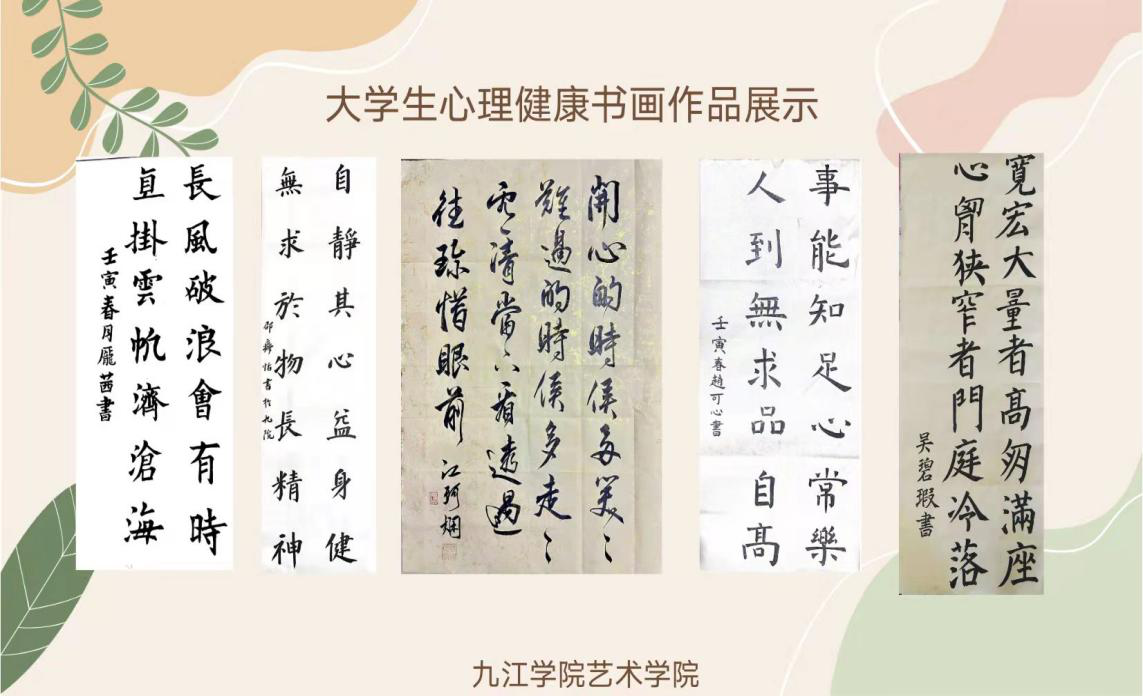 大学生心理健康书画作品展示
長風破浪會有時
直掛雲帆濟滄海
壬寅春月龐茜書
自靜其心益身健
無求於物長精神
書於九院
開心的時候多笑〻
難過的時候多走〻
清當下看透過
往珍惜眼前
江珂
事能知足心常樂
人到無求品自高
壬寅春趙可心書
寬宏大量者高朋滿座
心胸狭窄者門庭冷落
吴碧瑕書
九江学院艺术学院